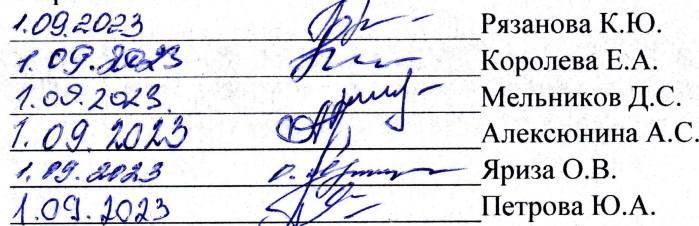 1.09.2023 Рязанова К.Ю.
1.09.2023 Королева Е.А.
1.09.2023. Мельников Д.С.
1.09.2023 Алексюнина А.С.
1.09.2023 Яриза О.В.
1.09.2023 Петрова Ю.А.